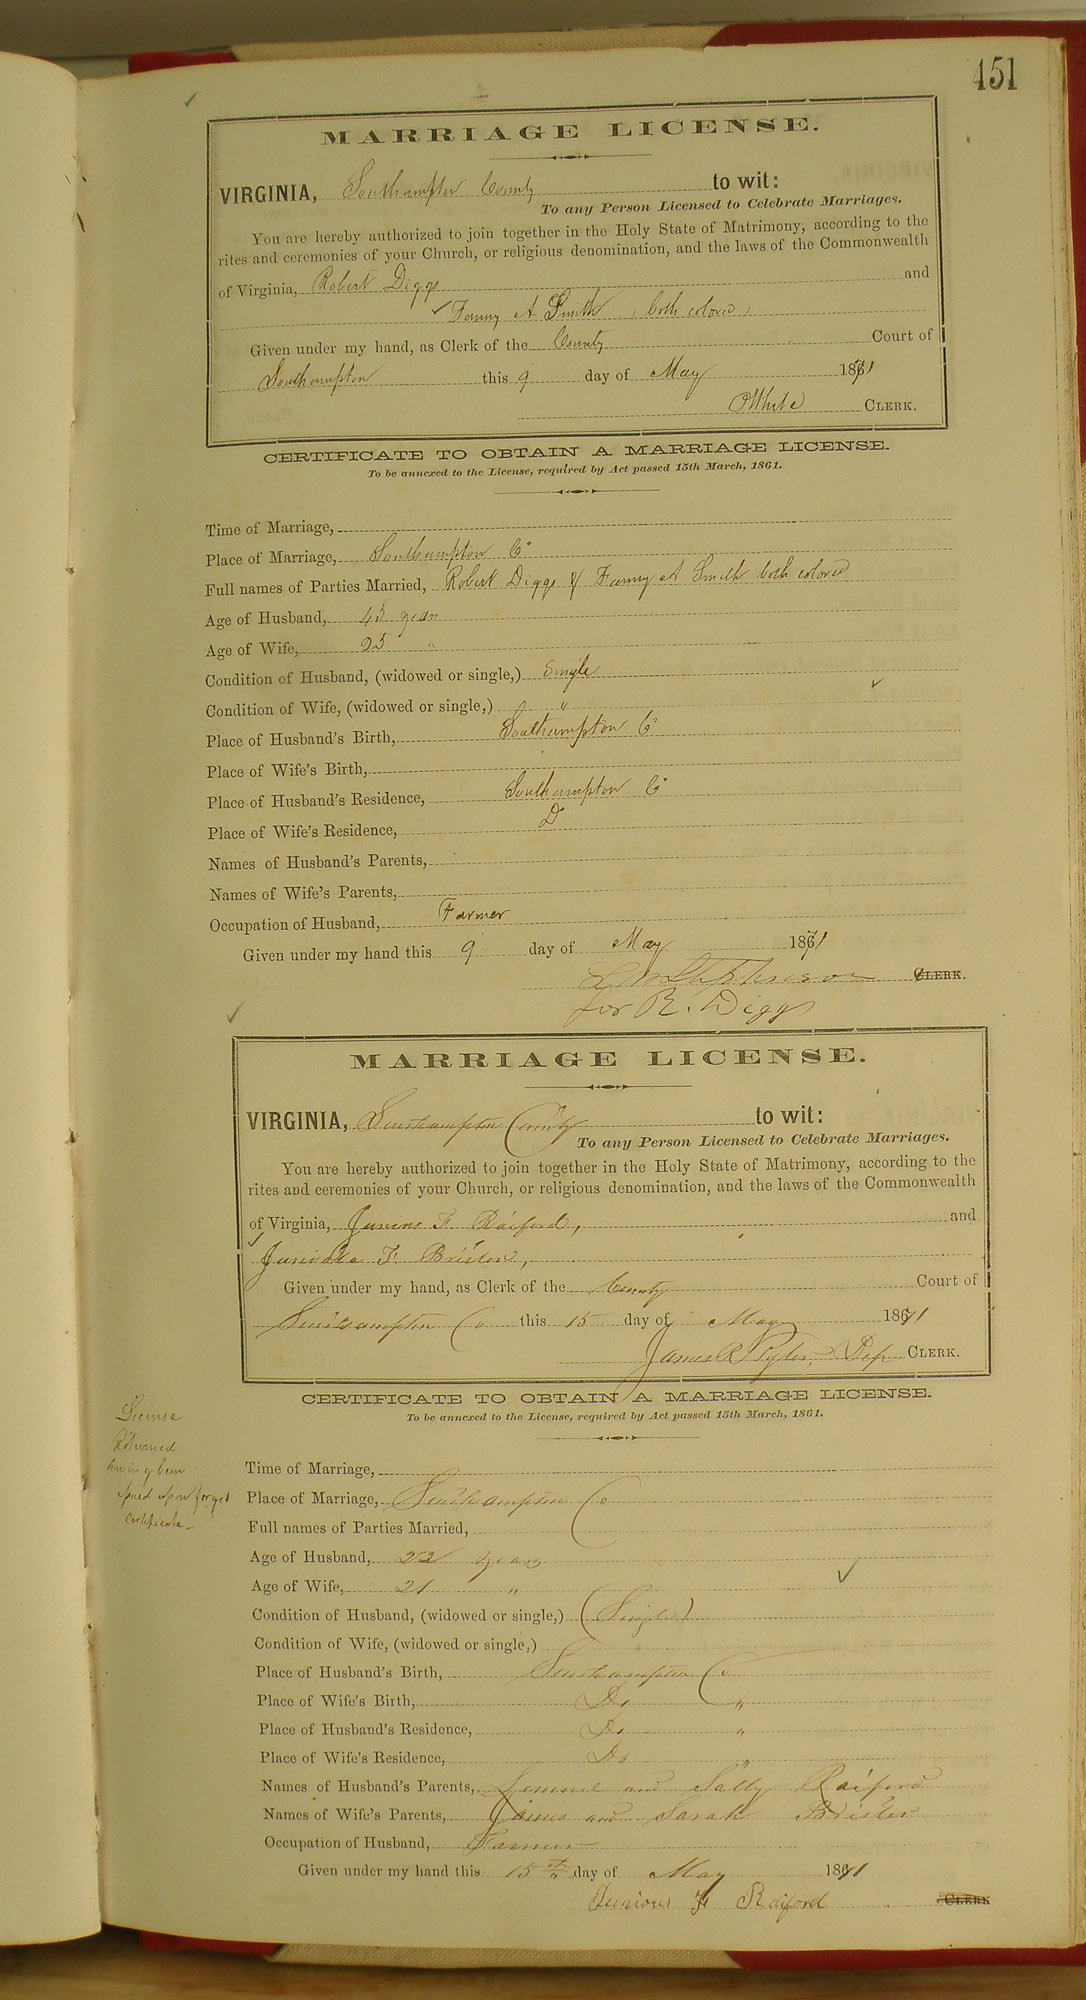 451
MARRIAGE LICENSE.
VIRGINIA, Southampton County to wit:
To any Person Licensed to Celebrate Marriages.
You are hereby authorized to join together in the Holy State of Matrimony, according to the
rites and ceremonies of your Church, or religious denomination, and the laws of the Commonwealth
of Virginia, Robert Diggs and
Fanny A Smith, both colored,
Given under my hand, as Clerk of the County Court of
Southampton this 9 day of May 1871
White CLERK.
CERTIFICATE TO OBTAIN A MARRIAGE LICENSE.
To be annexed to the License, required by Act passed 15th March, 1861.
Time of Marriage,
Place of Marriage, Southampton Co
Full names of Parties Married, Robert Diggs & Fanny A Smith both colored
Age of Husband, 45 years
Age of Wife, 25 "
Condition of Husband, (widowed or single,) Single
Condition of Wife, (widowed or single,) "
Place of Husband's Birth, Southampton Co
Place of Wife's Birth,
Place of Husband's Residence, Southampton Co
Place of Wife's Residence, Do
Names of Husband's Parents,
Names of Wife's Parents,
Occupation of Husband, Farmer
Given under my hand this 9 day of May 1871
Stephenson CLERK.
for R. Diggs
MARRIAGE LICENSE.
VIRGINIA, Southampton County to wit:
To any Person Licensed to Celebrate Marriages.
You are hereby authorized to join together in the Holy State of Matrimony, according to the
rites and ceremonies of your Church, or religious denomination, and the laws of the Commonwealth
of Virginia, Junius F. Raiford, and
F. Brister,
Given under my hand, as Clerk of the County Court of
Southampton Co this 15 day of May 1871
James R Tyler, Dep CLERK.
CERTIFICATE TO OBTAIN A MARRIAGE LICENSE.
To be annexed to the License, required by Act passed 15th March, 1861.
License
Returned
having been
upon forged
certificate
Time of Marriage,
Place of Marriage, Southampton Co
Full names of Parties Married,
Age of Husband, 22 years
Age of Wife, 21 "
Condition of Husband, (widowed or single,) (Single)
Condition of Wife, (widowed or single,) "
Place of Husband's Birth, Southampton Co
Place of Wife's Birth, Do "
Place of Husband's Residence, Do "
Place of Wife's Residence, Do "
Names of Husband's Parents, Lemuel and Sally Raiford
Names of Wife's Parents, James and Sarah Brister
Occupation of Husband, Farmer
Given under my hand this 15th day of May 1871
Junious F Raiford CLERK